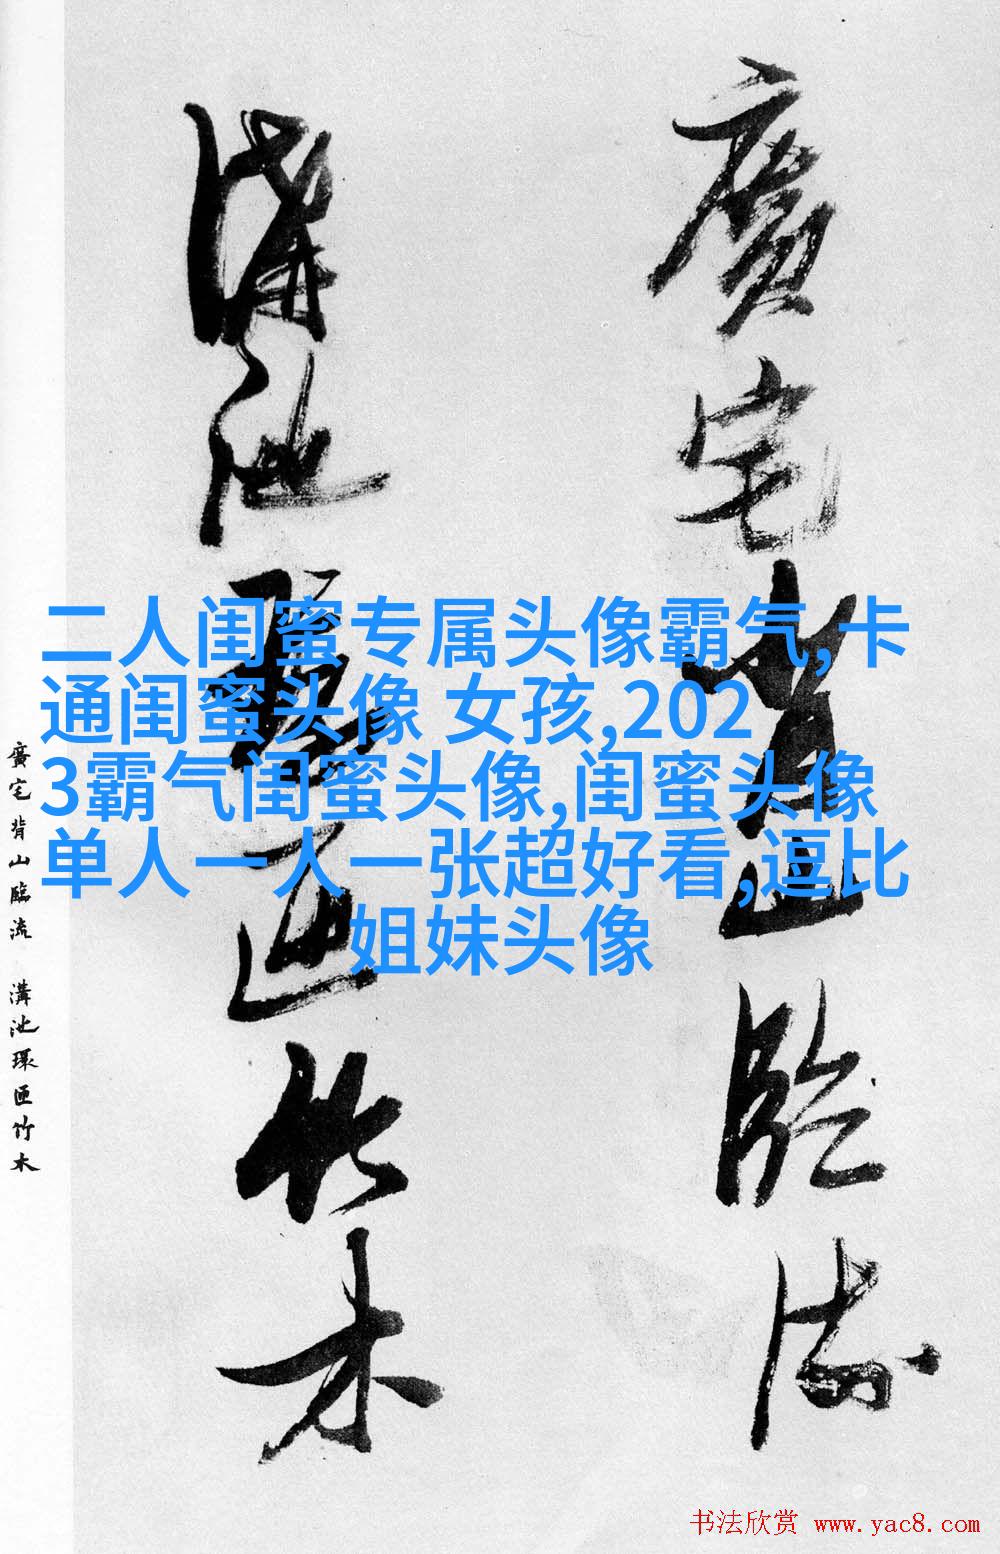 廣宅背山臨流
溝池環匝竹木
二人闺蜜专属头像霸气,卡
通闺蜜头像 女孩,202
3霸气闺蜜头像,闺蜜头像
单人一人一张超好看,逗比
姐妹头像
廣宅背山臨流 溝池環匝竹木
书法欣赏 www.yac8.com